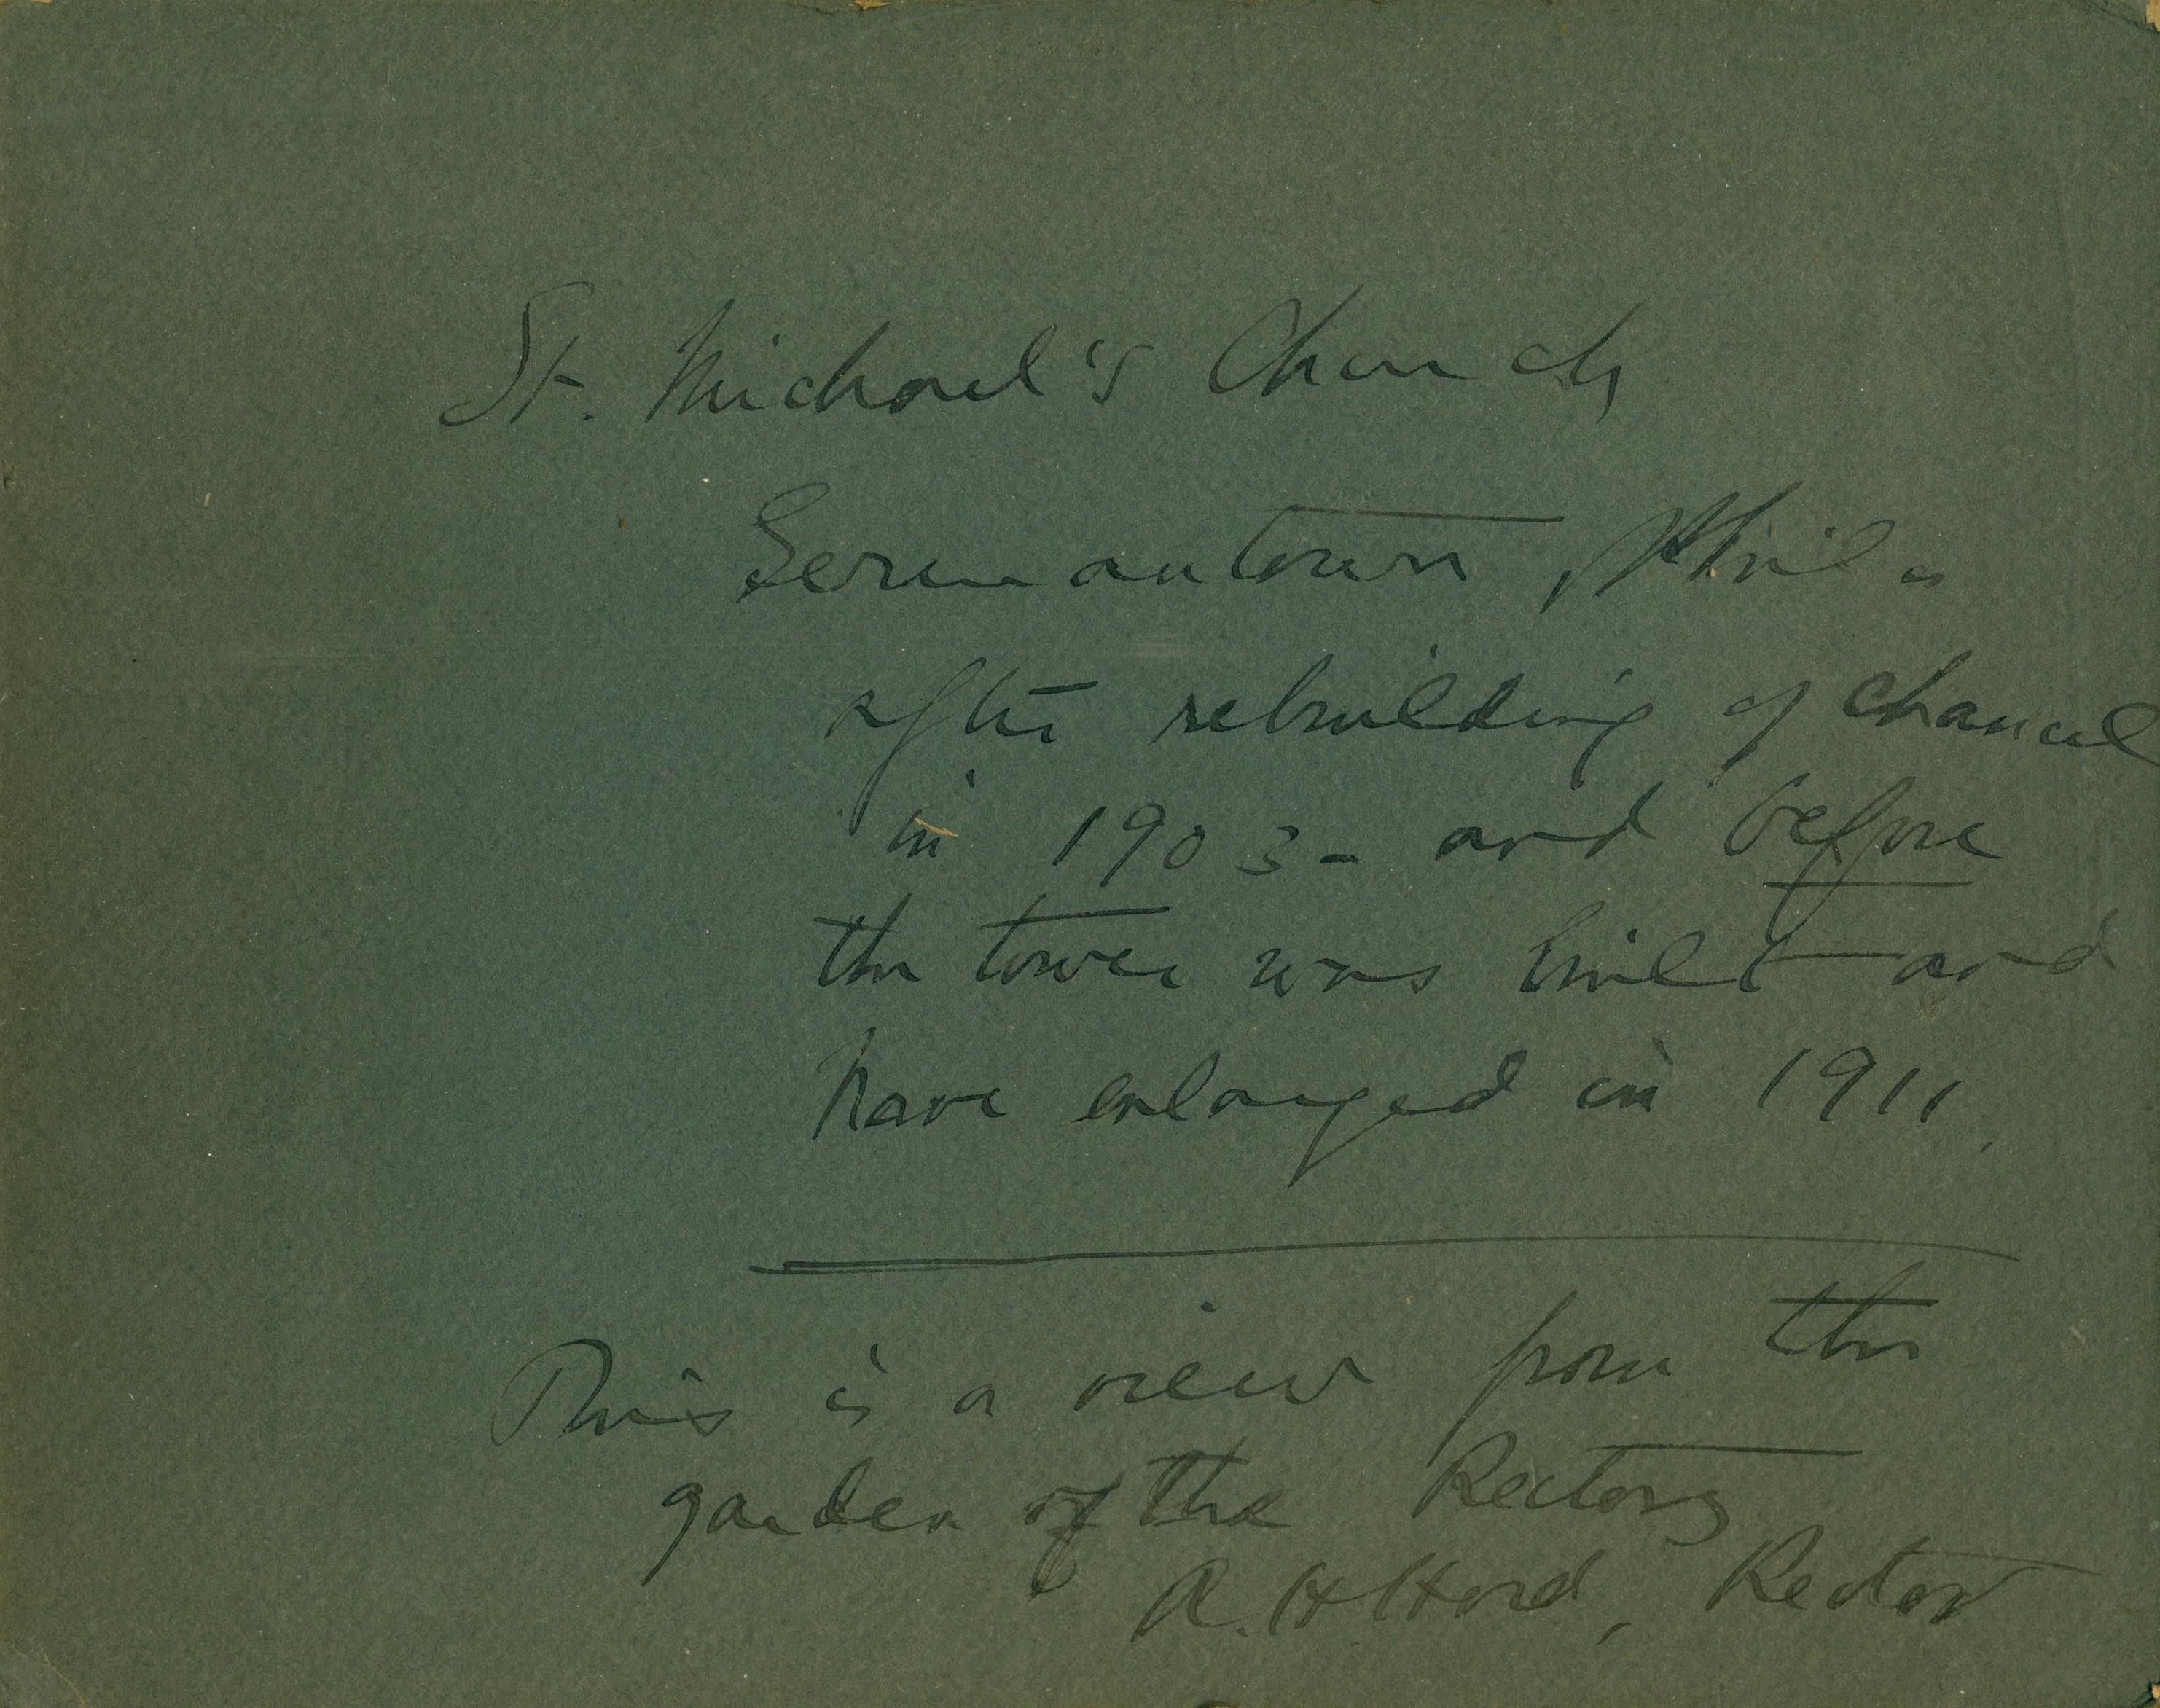 St. Michael's Church
Germantown, Phila
after rebuilding of chancel
in 1903 - and before
the tower was built and
nave enlarged in 1911.
This is a view from the
garden of the Rectory
A. H. Hord, Rector